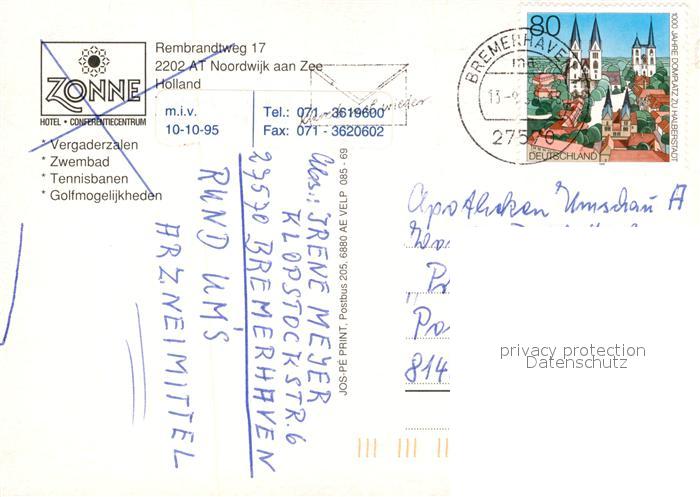 ZONNE
HOTEL • CONFERENTIECENTRUM
Rembrandtweg 17
2202 AT Noordwijk aan Zee
Holland
m.i.v.
10-10-95
Tel.: 071-3619600
Fax: 071-3620602
* Vergaderzalen
* Zwembad
* Tennisbanen
* Golfmogelijkheden
Abs.: IRENE MEJER
KLOPSTOCKSTR. 6
27570 BREMERHAVEN
RUND UM'S
ARZNEIMITTEL
JOS-PÉ PRINT, Postbus 205, 6880 AE VELP 085-69
wieder
BREMERHAVEN
27570
80
1000 JAHRE DOMPLATZ ZU HALBERSTADT
DEUTSCHLAND
Apotheken Umschau A
814
privacy protection
Datenschutz